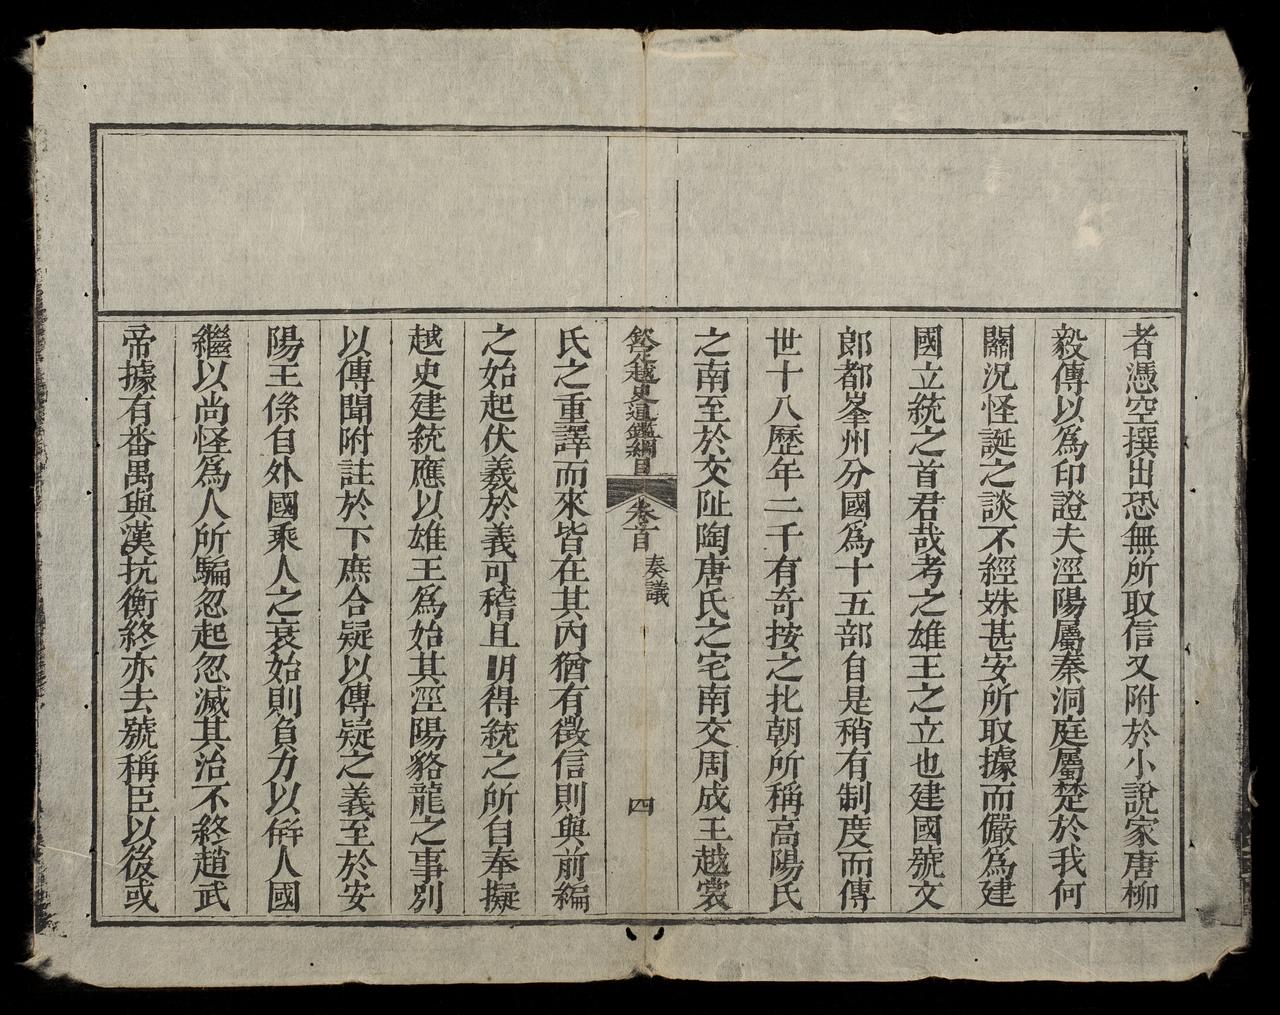 者憑空撰出恐無所取信又附於小說家唐柳
毅傳以爲印證夫涇陽屬秦洞庭屬楚於我何
關況怪誕之談不經姝甚安所取據而儼爲建
國立統之首君哉考之雄王之立也建國號文
郎都峯州分國爲十五部自是稍有制度而傳
世十八歷年二千有奇按之北朝所稱高陽氏
之南至於交阯陶唐氏之宅南交周成王越裳
欽定越史通鑑綱目 卷首 奏議 四
氏之重譯而來皆在其內猶有徵信則與前編
之始起伏羲於義可稽且明得統之所自奉擬
越史建統應以雄王爲始其涇陽貉龍之事別
以傳聞附註於下庶合疑以傳疑之義至於安
陽王係自外國乘人之衰始則負力以倂人國
繼以尚怪爲人所騙忽起忽滅其治不終趙武
帝據有番禺與漢抗衡終亦去號稱臣以後或